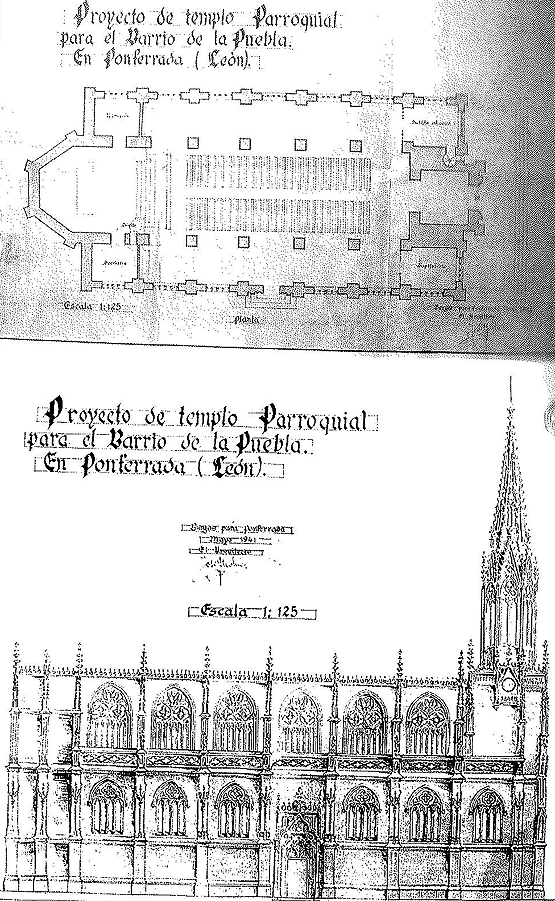 Proyecto de templo Parroquial
para el Barrio de la Puebla.
En Ponferrada (León).
Escala 1:125
planta
Proyecto de templo Parroquial
para el Barrio de la Puebla.
En Ponferrada (León).
Burgos para Ponferrada
Mayo 1941
El Arquitecto
Escala 1:125